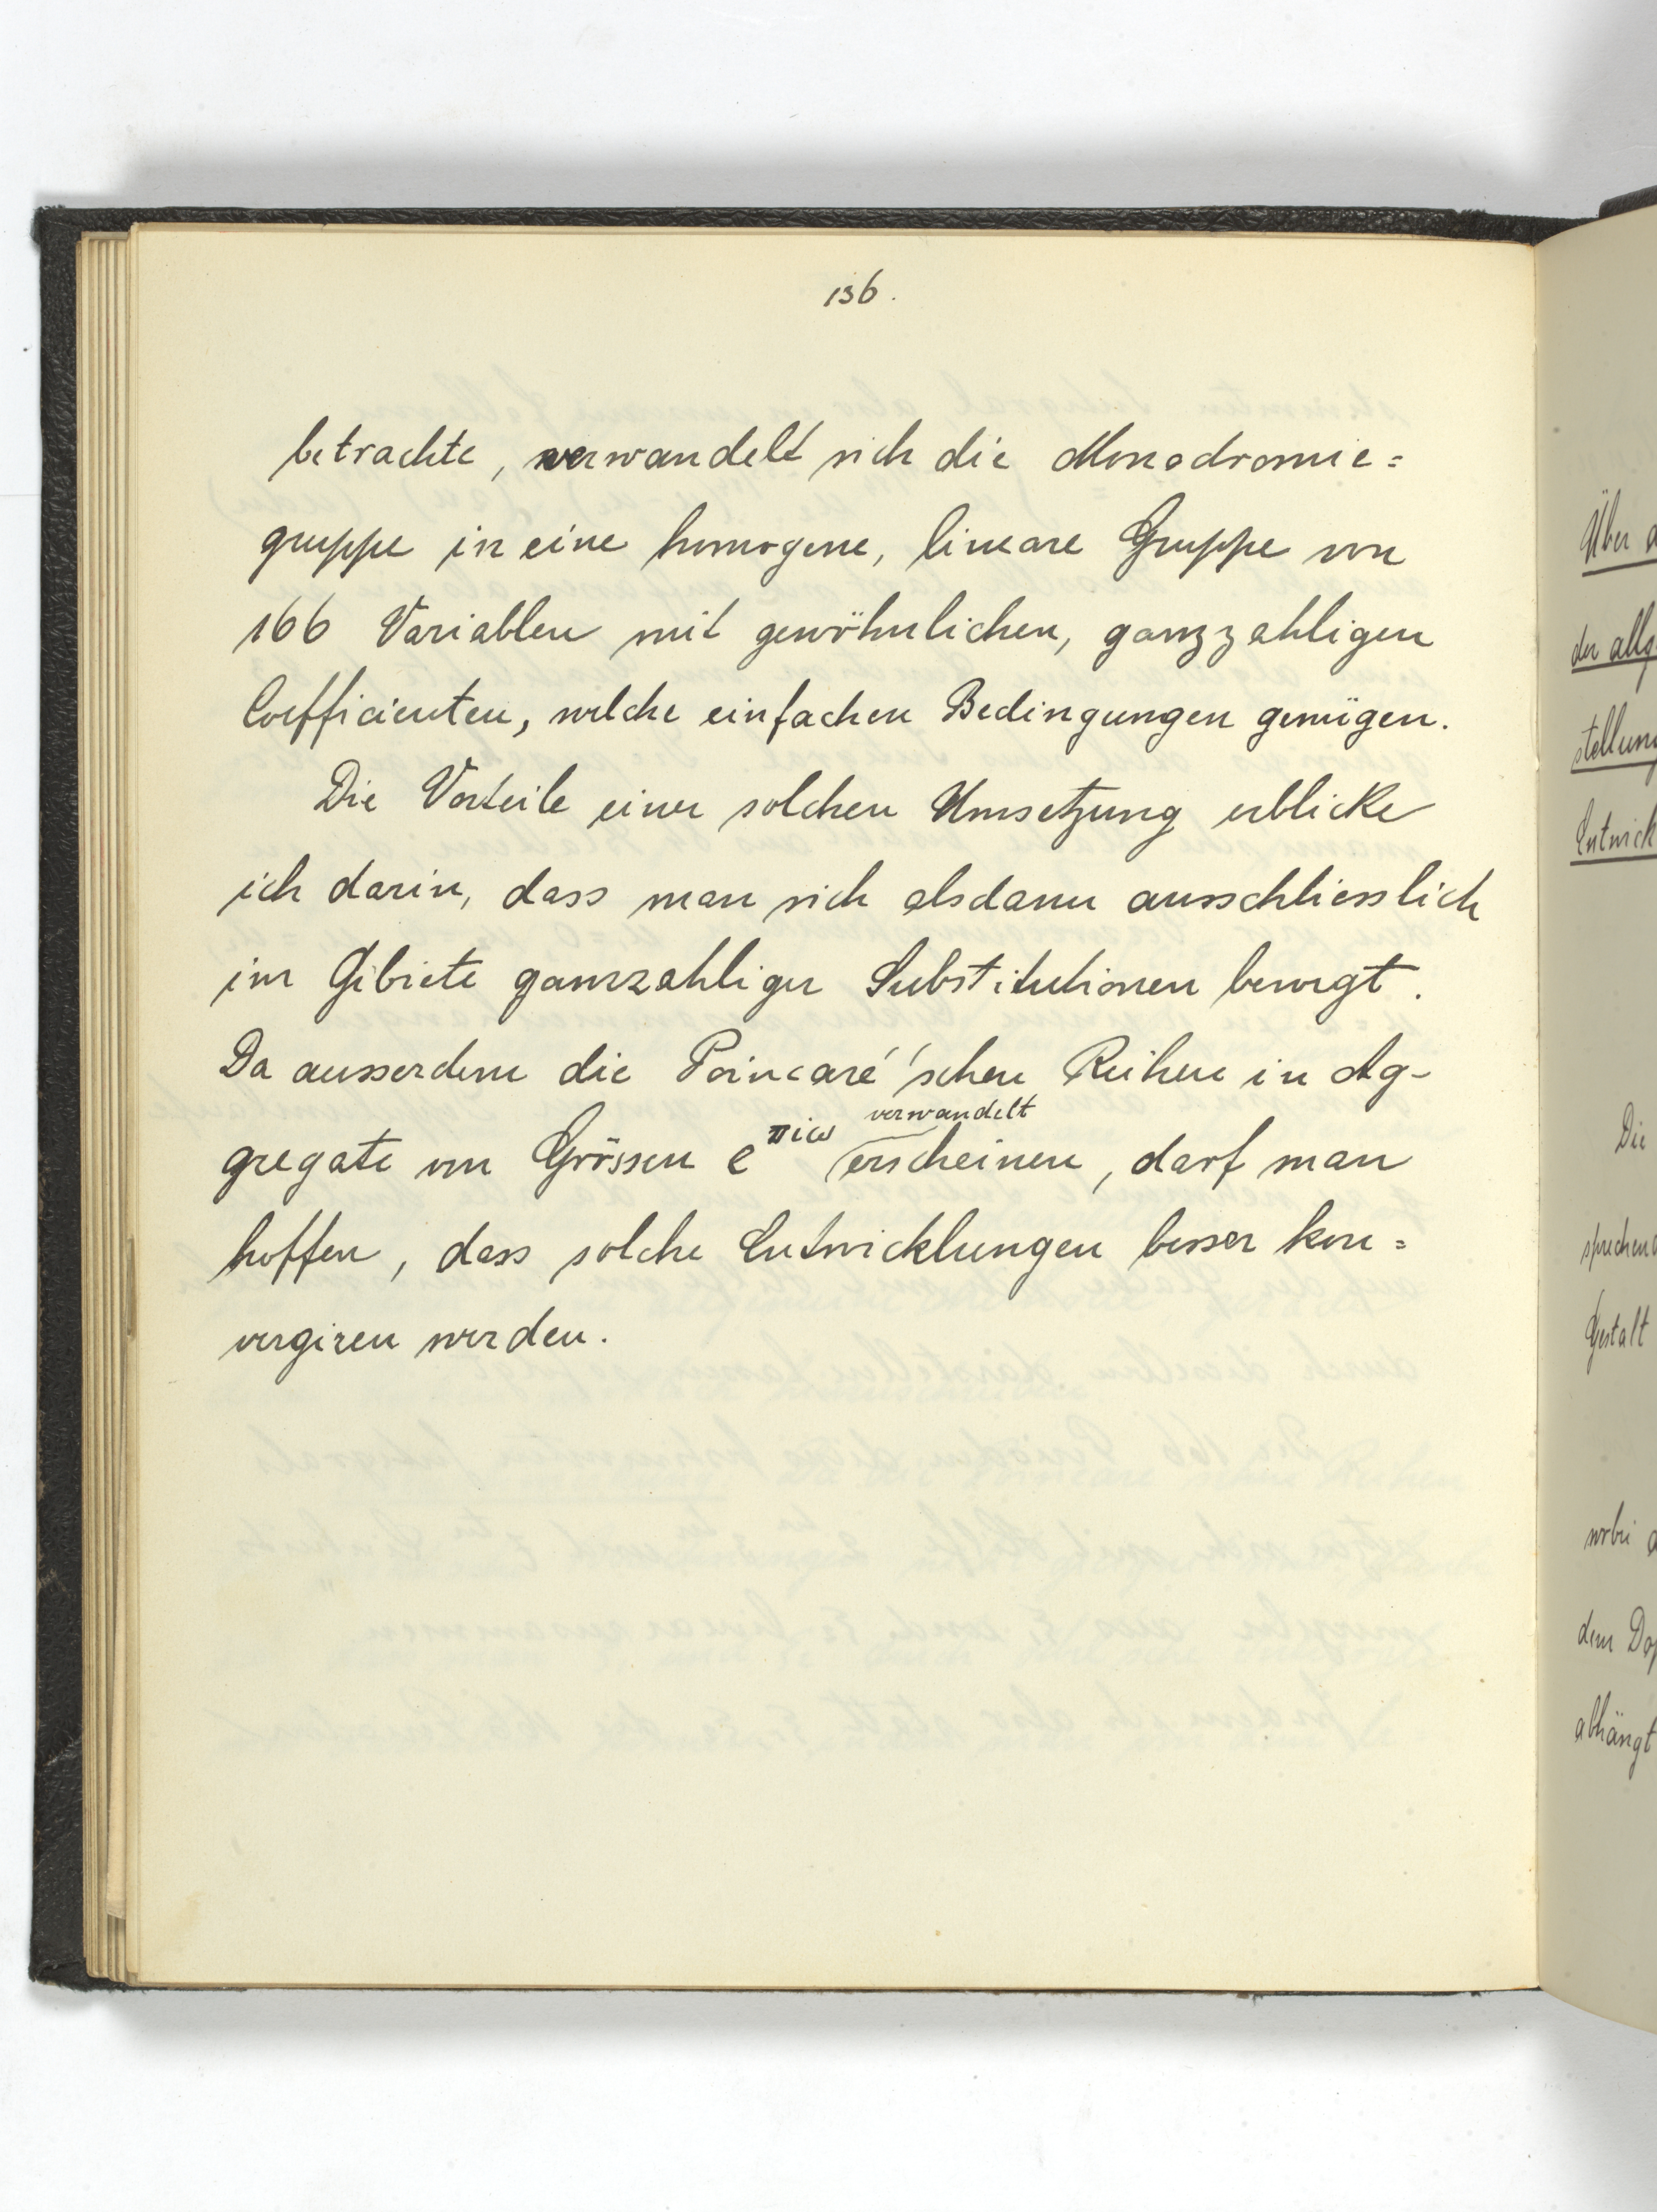 136.
betrachte, verwandelt sich die Monodromie=
gruppe in eine homogene, lineare Gruppe von
166 Variablen mit gewöhnlichen, ganzzahligen
Coefficienten, welche einfachen Bedingungen genügen.
Die Vorteile einer solchen Umsetzung erblicke
ich darin, dass man sich alsdann ausschliesslich
im Gebiete ganzzahliger Substitutionen bewegt.
Da ausserdem die Poincaré'schen Reihen in Ag-
verwandelt
gregate von Grössen e^πiω erscheinen, darf man
hoffen, dass solche Entwicklungen besser kon=
vergiren werden.
Über
der allg.
stellung
Entwick
Die
sprechend
Gestalt
wobei
dem Dop
abhängt